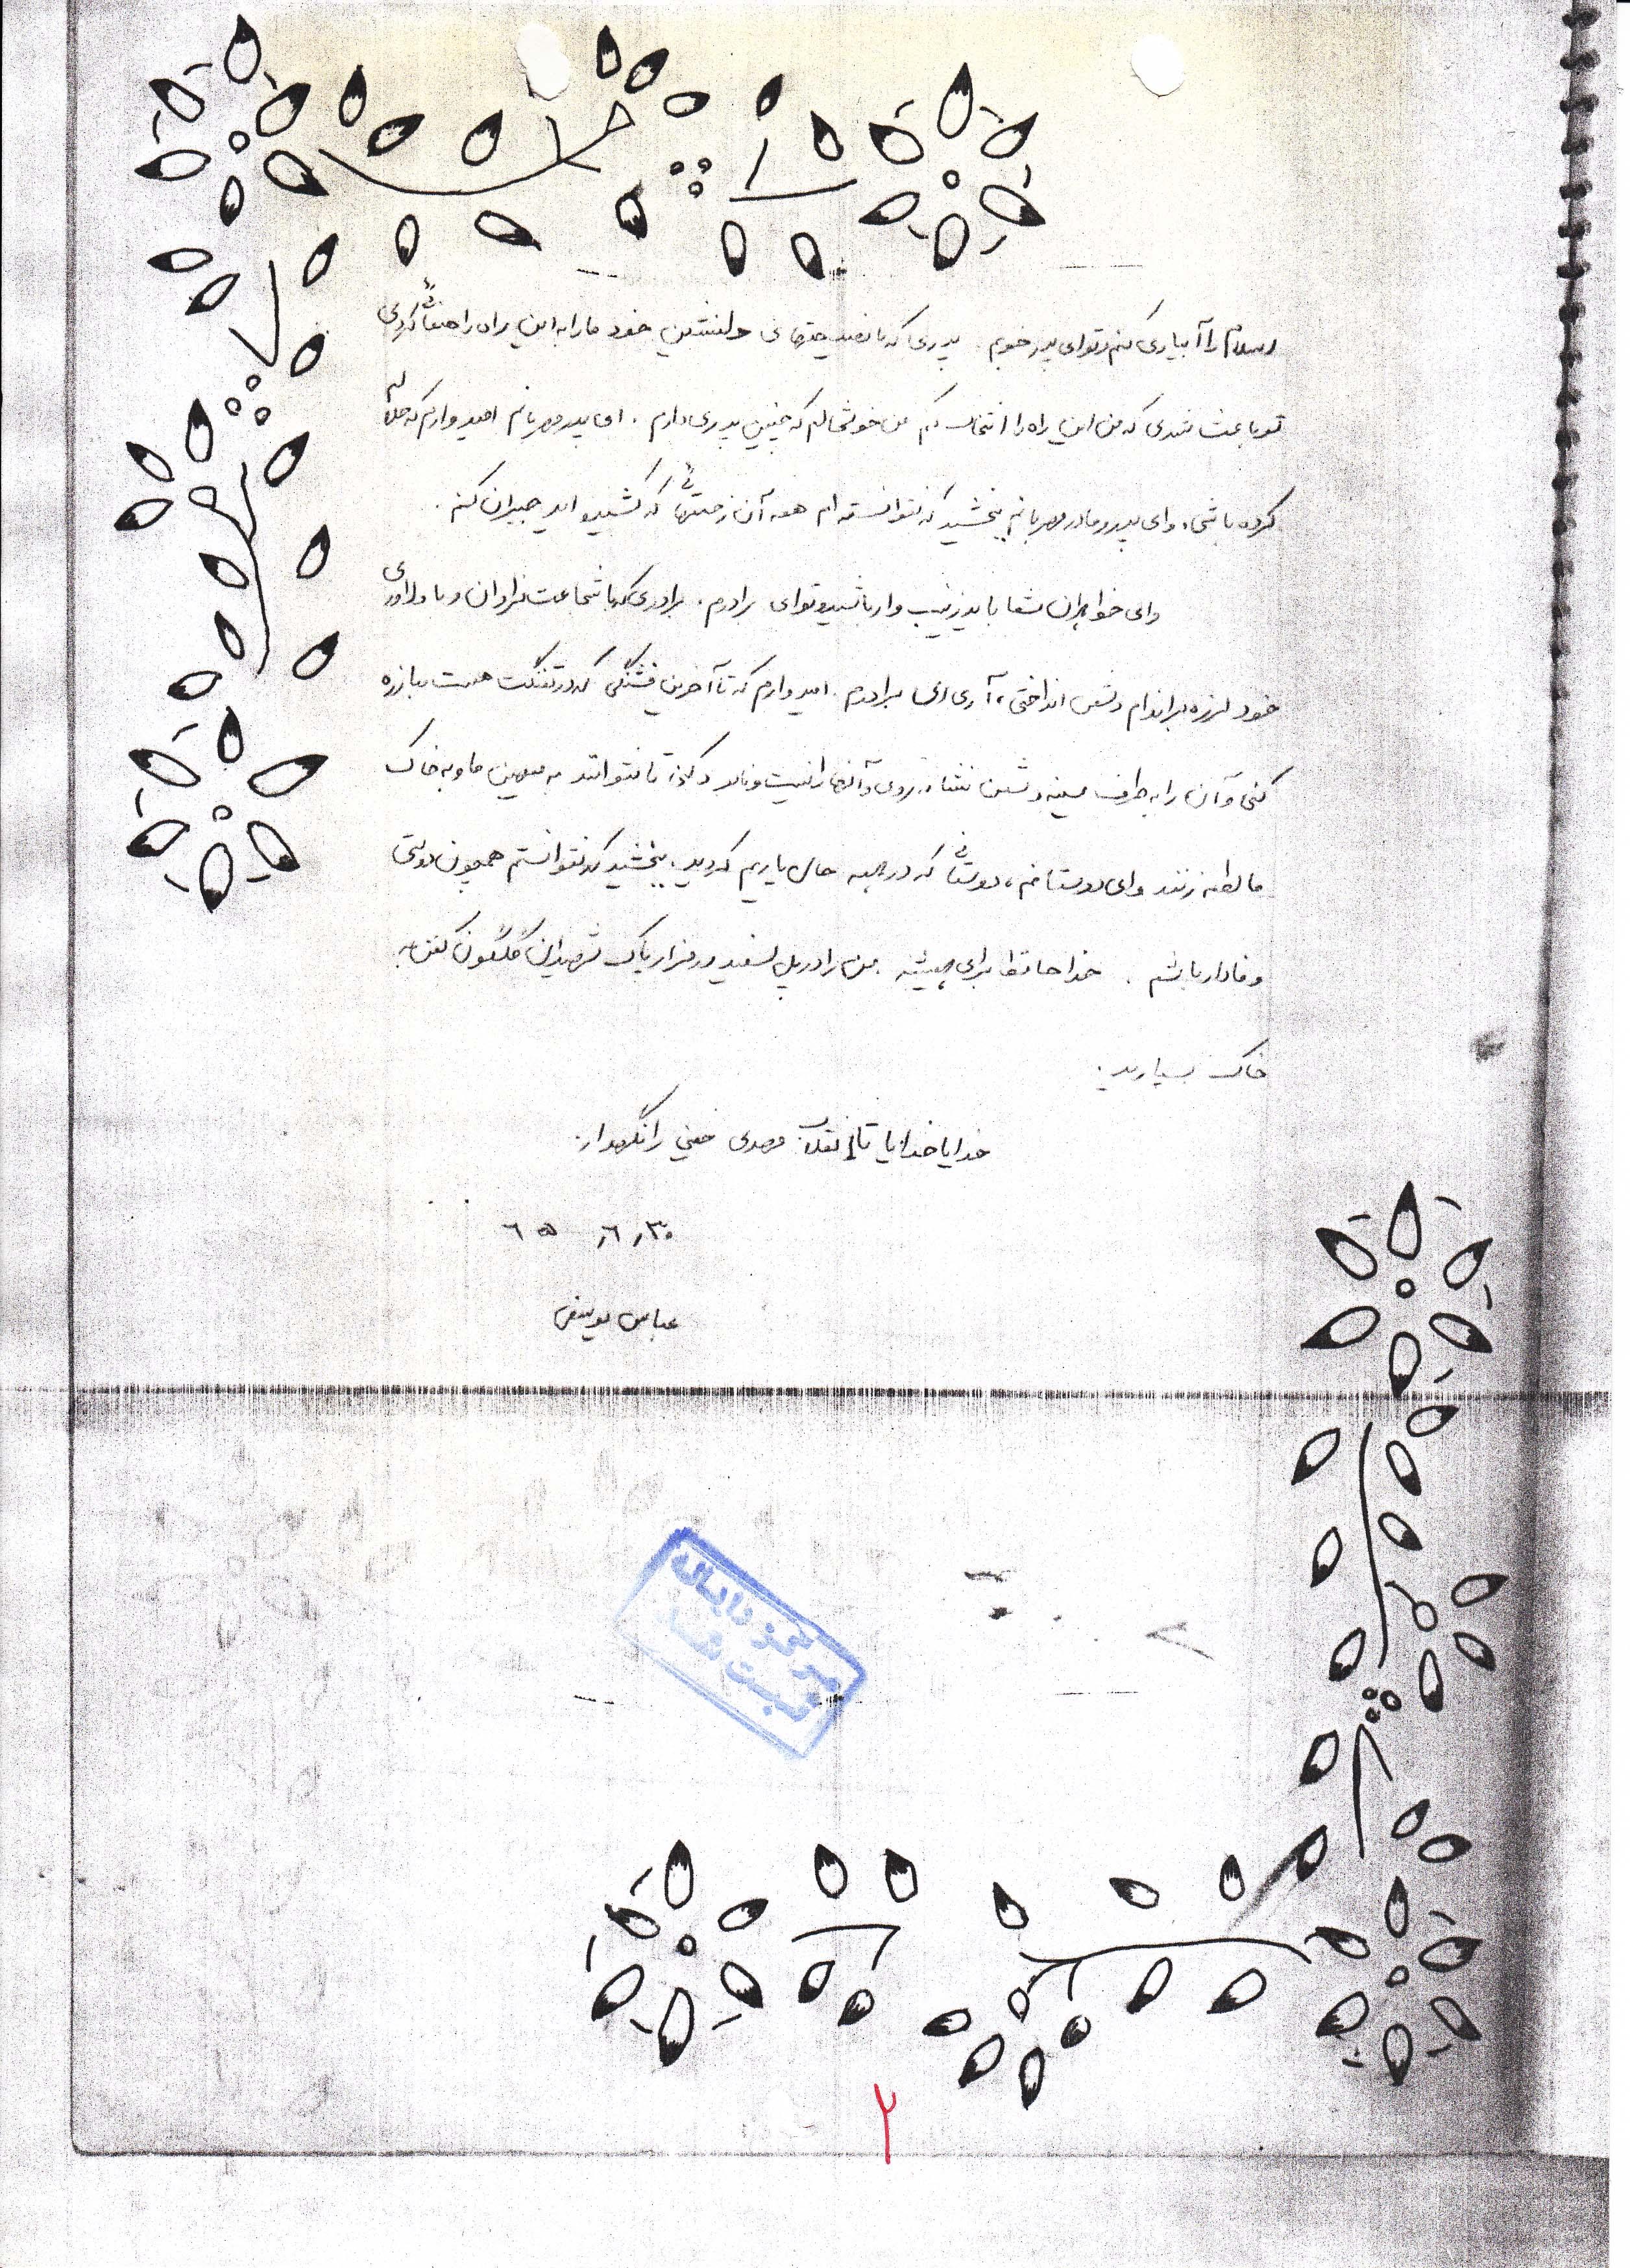 اسلام را آبیاری کنم و تو ای پدر خوبم . پدری که با نصیحتهای دلنشین خود ما را به این راه راهنمائی کردی
تو باعث شدی که من این راه را انتخاب کنم من خوشحالم که چنین پدری دارم . ای پدر مهربانم امیدوارم که حلالم
کرده باشی و ای پدر و مادر مهربانم ببخشید که نتوانسته ام همه آن زحمتهائی که کشیده اید جبران کنم .
و ای خواهران شما باید زینب وار باشید و تو ای برادرم . برادری که با شجاعت فراوان و با دلاوری
خود لرزه بر اندام دشمن انداختی ، آری ای برادرم . امیدوارم که تا آخرین فشنگی که در تفنگت هست مبارزه
کنی و آن را به طرف سینه دشمن نشانه روی و آنها را نیست و نابود کنی تا نتوانند به میهن ما و به خاک
ما لطمه زنند و ای دوستانم ، دوستانی که در همه حال یاریم کردید . ببخشید که نتوانستم همچون دوستی
وفادار باشم . خدا حافظ برای همیشه . من را در پل سفید در مزار پاک شهیدان گلگون کفن به
خاک بسپارید .
خدایا خدایا تا انقلاب مهدی خمینی را نگهدار .
۶۵ ر۶ ر۳۰
عباس یوسفی
مرکز رایانه
ثبت شد
۲